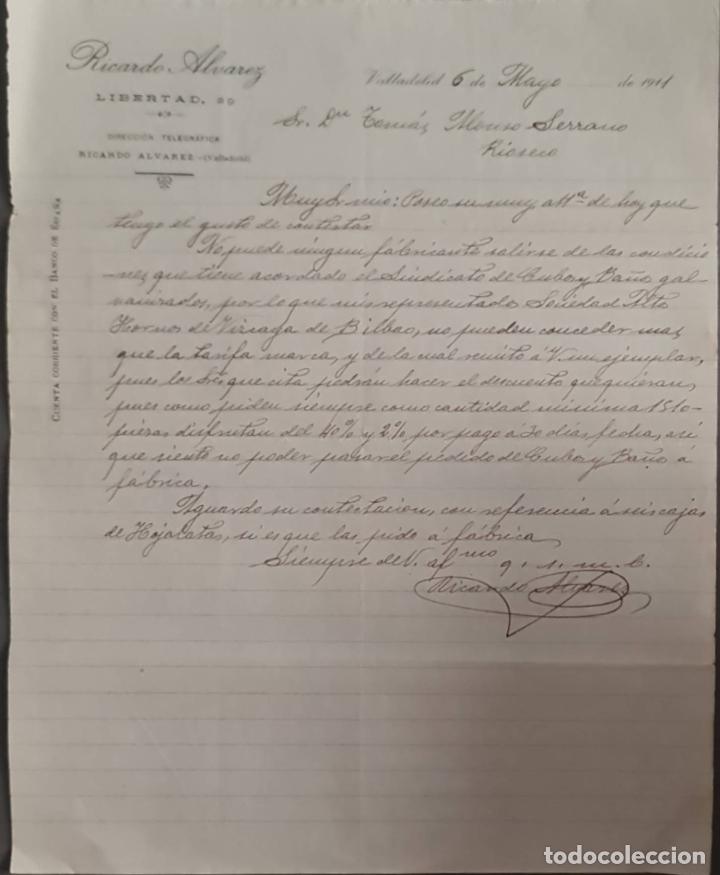 Ricardo Alvarez
LIBERTAD, 20
DIRECCIÓN TELEGRÁFICA
RICARDO ALVAREZ-(Valladolid)
CUENTA CORRIENTE CON EL BANCO DE ESPAÑA
Valladolid 6 de Mayo de 1911
Sr. Dn Tomás Alonso Serrano
Rioseco
Muy Sr mio: Poseo su muy atta de hoy que
tengo el gusto de contestar
No puede ningun fábricante salirse de las condicio
-nes que tiene acordado el Sindicato de Cubos y Baños gal-
vanizados, por lo que mis representados Sociedad Altos
Hornos de Vizcaya de Bilbao, no pueden conceder mas
que la tarifa marca, y de la cual remito á V. un ejemplar,
pues los Srs que cita podrán hacer el descuento que quieran,
pues como piden siempre como cantidad minima 1510
piezas disfrutan del 40% y 2% por pago á 30 dias fecha, asi
que siento no poder pasar el pedido de Cubos y Baños á
fábrica.
Aguardo su contestacion, con referencia á seis cajas
de Hojalatas, si es que las pido á fábrica
Siempre de V. afmo q. s. m. b.
Ricardo Alvarez
todocoleccion